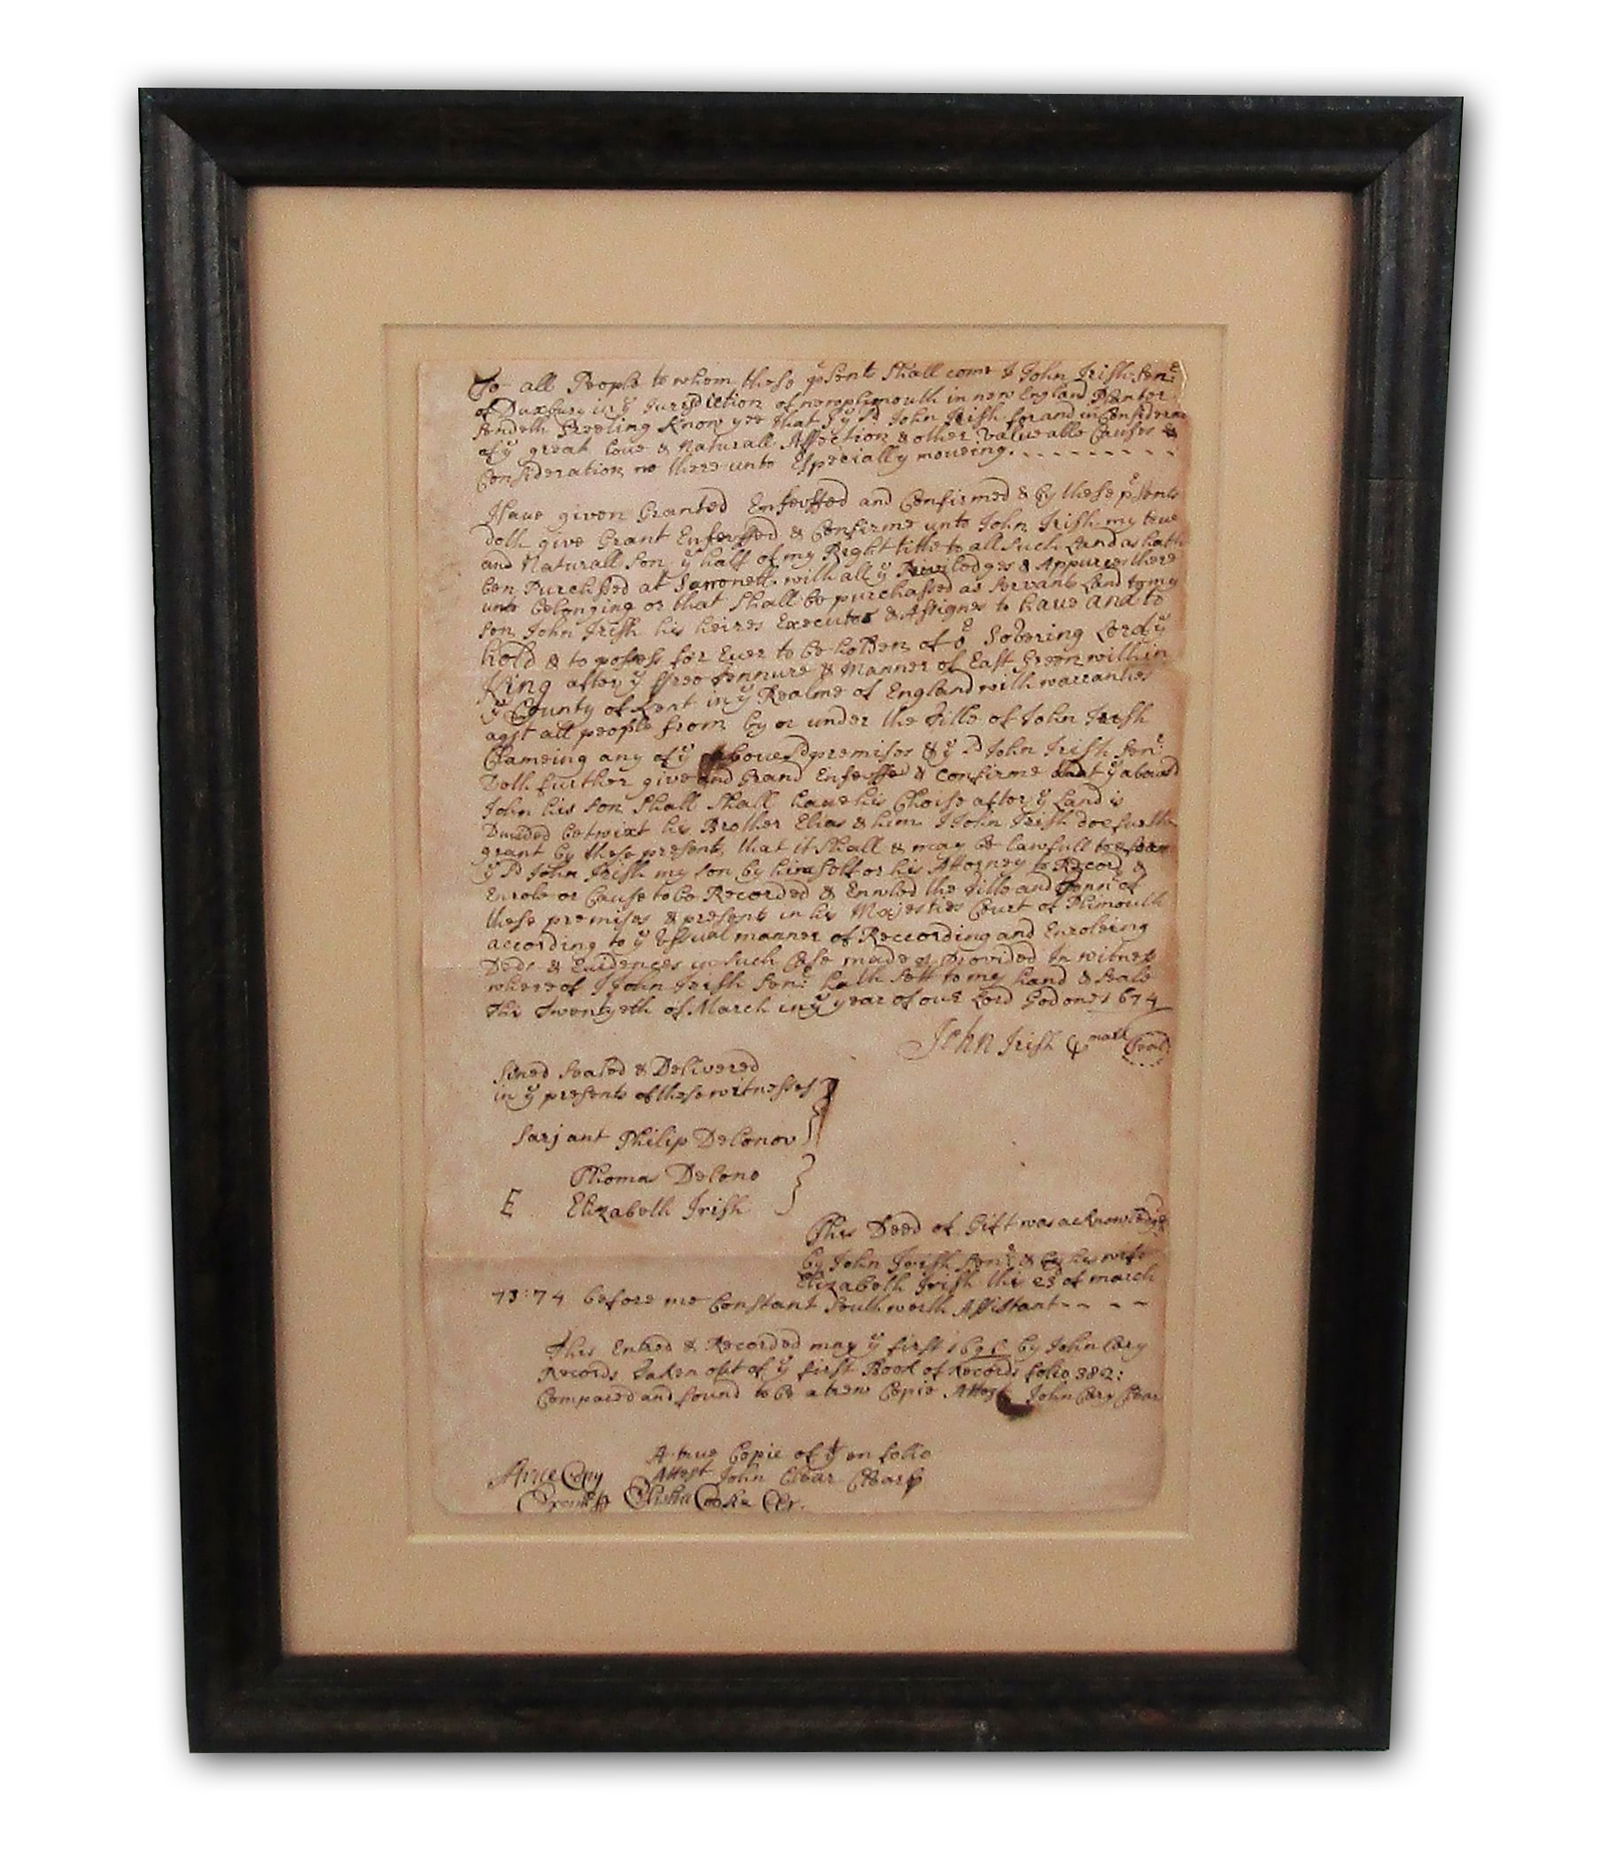 To all People to whom these psents Shall come I John Irish Senr
of Duxbury in ye Jurisdiction of new plimouth in new England Planter
Sendeth Greeting Know yee that I ye sd John Irish for and in Consideration
of ye great love & Naturall Affection & other valueable Causes &
Consideration me there unto Especially moveing
Have given Granted Enfeoffed and Confirmed & by these psents
doth give Grant Enfeoffed & Confirme unto John Irish my true
and Naturall son ye half of my Right title to all such Land as hath
ben Purchesed at with all ye Priviledges & Appurces there
unto belonging or that Shall be purchassed as servants Land to my
son John Irish his heires Executor & Assignes to have and to
hold & to posess for Ever to be holden of or Sovering Lord ye
King after ye ffree tennure & Manner of East Green within
ye County of Kent in ye Realme of England with warranties
agst all people from by or under the Title of John Irish
Clameing any of ye abovesd premises & ye sd John Irish Senr
Doth further give and Grand Enfeoffe & confirme that ye abovesd
John his son Shall Shall have his Choise after ye Land is
Devided betwixt his Brother Elias & him I John Irish doe further
grant by these presents that it Shall & may be lawfull to &
ye sd John Irish my son by himself or his Attorney to Record &
Enrole or Cause to be Recorded & Enroled the Title and of
these premises & presents in his Majesties Court of Plimouth
according to ye Usual manner of Reccording and Enroleing
Deds & Evidences in such Case made & Provided In witness
whereof I John Irish Senr hath sett to my hand & seale
this Twentyeth of March in ye year of our Lord God one 1674
John Irish mark Seal
Sined Sealed & Delivered
in ye presents of these witnesses
Sarjant Philip Delonov
Thomas Delono
E Elizabeth Irish
This Deed of Gift was acknowledged
by John Irish Senr & by his wife
Elizabeth Irish this 23 of march
73:74 before me Constant Southworth Assistant
This Entred & Recorded may ye first by John Cary
Records Taken out of ye first Book of Records folio 382:
Compared and found to be a trew Copie Attest John Cary Clear
A true Copie of ye on folio
Attest John
A true Copy
Elisha Cooke Cler.